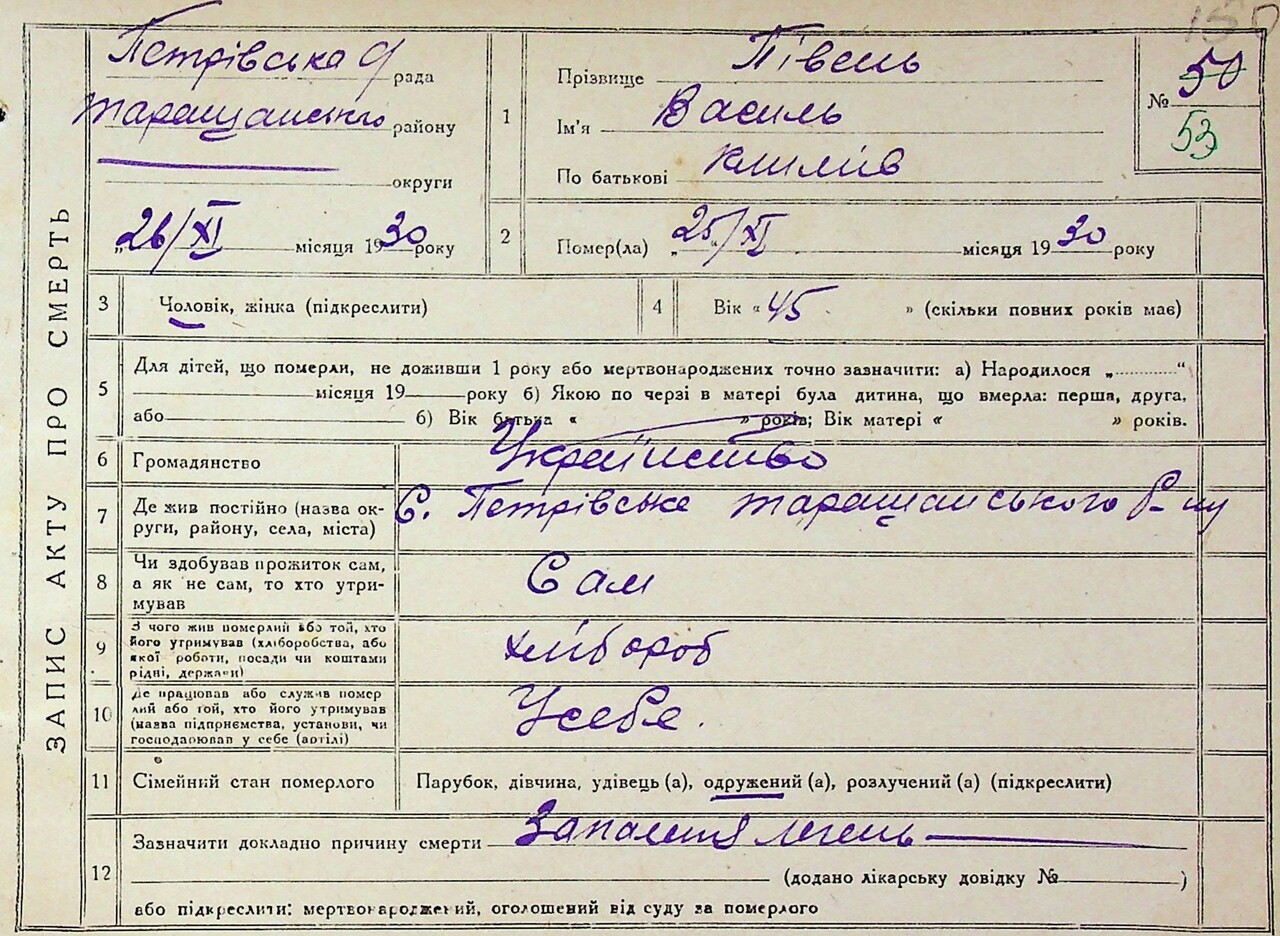 150
Петрівська
рада
Таращанського району
округи
„26/XI місяця 1930 року
ЗАПИС АКТУ ПРО СМЕРТЬ
1 Прізвище Півень
Ім'я Василь
По батькові Климів
№ 50
53
2 Помер(ла) „25/XI місяця 1930 року
3 Чоловік, жінка (підкреслити)
4 Вік « 45 » (скільки повних років має)
5 Для дітей, що померли, не доживши 1 року або мертвонароджених точно зазначити: а) Народилося „..........“
місяця 19 року б) Якою по черзі в матері була дитина, що вмерла: перша, друга,
або б) Вік батька « » років; Вік матері « » років.
6 Громадянство Українство
7 Де жив постійно (назва ок-
руги, району, села, міста)
С. Петрівське Таращанського Р-ну
8 Чи здобував прожиток сам,
а як не сам, то хто утри-
мував
Сам
9 З чого жив померлий або той, хто
його утримував (хліборобства, або
якої роботи, посади чи коштами
рідні, держави)
хлібороб
10 Де працював або служив помер
лий або той, хто його утримував
(назва підприємства, установи, чи
господарював у себе (артілі)
Усебе.
11 Сімейний стан померлого Парубок, дівчина, удівець (а), одружений (а), розлучений (а) (підкреслити)
12 Зазначити докладно причину смерти Запалення легень
(додано лікарську довідку № )
або підкреслити: мертвонароджений, оголошений від суду за померлого